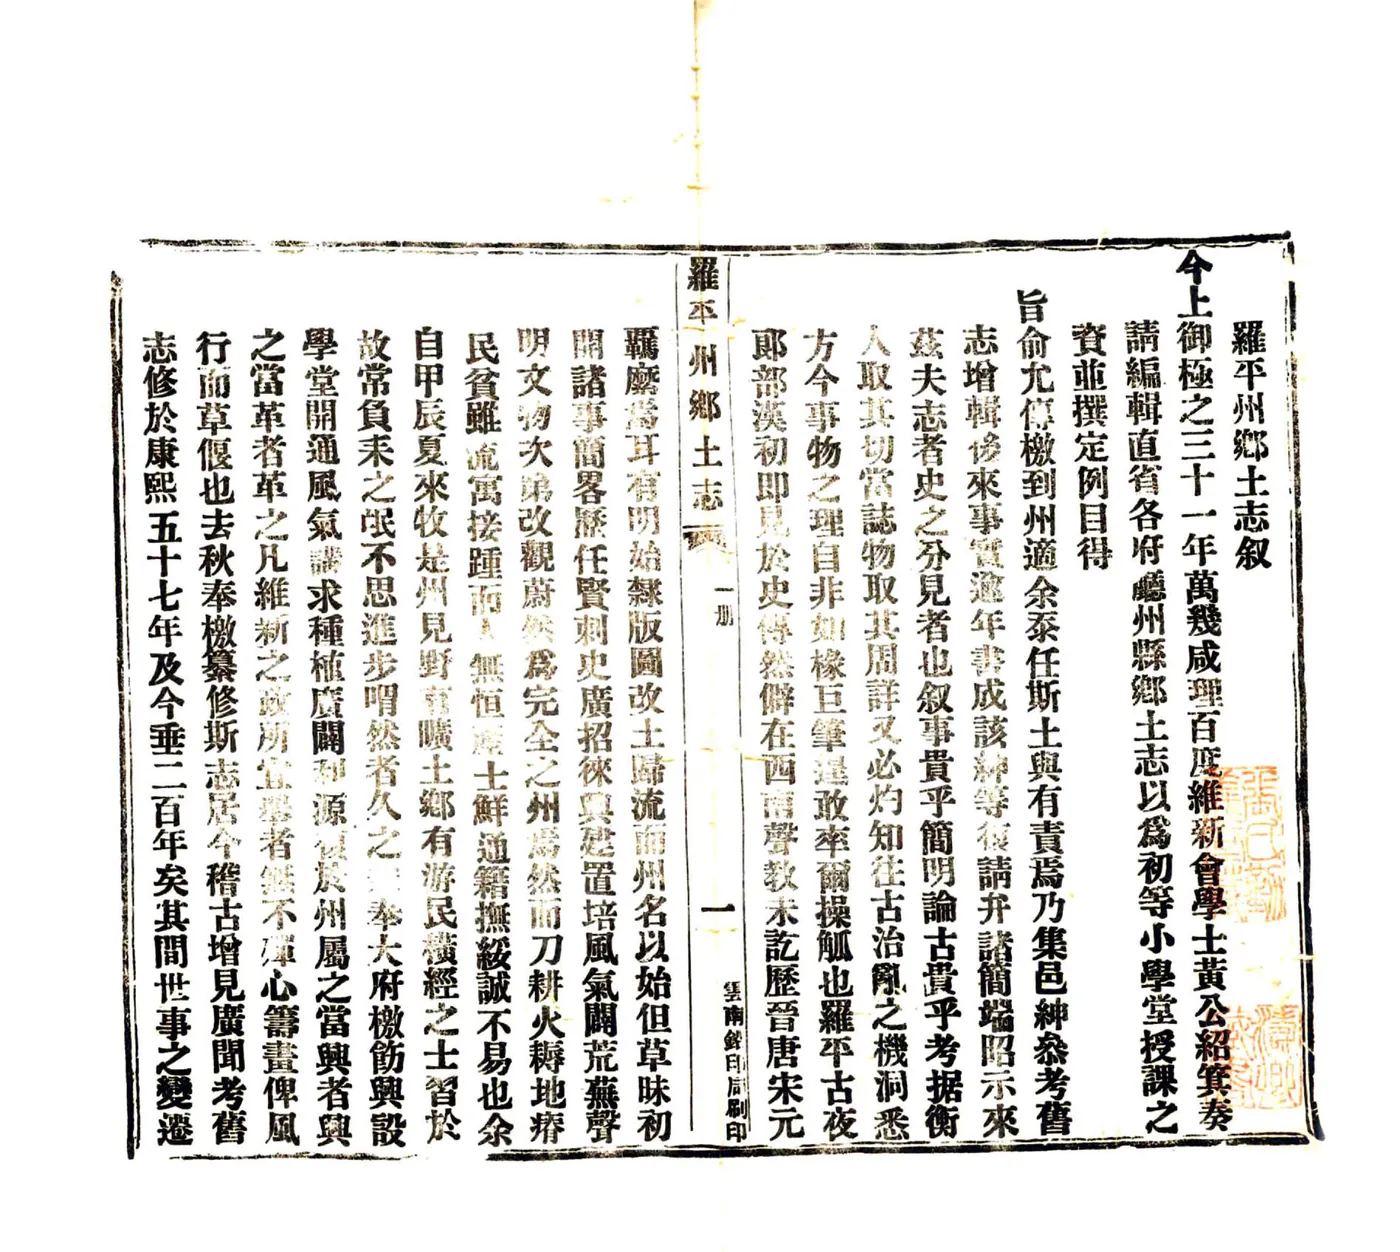 羅平州鄉土志叙
今上御極之三十一年萬幾咸理百度維新會學士黃公紹箕奏
請編輯直省各府廳州縣鄉土志以爲初等小學堂授課之
資並撰定例目得
旨俞允傳檄到州適余泰任斯土與有責焉乃集邑紳叅考舊
志增輯後來事實逾年書成該紳等復請弁諸簡端昭示來
茲夫志者史之分見者也叙事貴乎簡明論古貴乎考据衡
人取其切當誌物取其周詳又必灼知往古治亂之機洞悉
方今事物之理自非如椽巨筆遑敢率爾操觚也羅平古夜
郞部漢初即見於史傳然僻在西南聲教未訖歷晉唐宋元
羈縻焉耳有明始隸版圖改土歸流而州名以始但草昧初
開諸事簡畧歷任賢刺史廣招徠興建置培風氣闢荒蕪聲
明文物次第改觀蔚然爲完全之州焉然而刀耕火耨地瘠
民貧雖流寓接踵而人無恒產士鮮通籍撫綏誠不易也余
自甲辰夏來牧是州見野有曠土鄉有游民橫經之士習於
故常負耒之氓不思進步喟然者久之 奉大府檄飭興設
學堂開通風氣講求種植廣闢利源 於州屬之當興者興
之當革者革之凡維新之政所宜舉者無不殫心籌畫俾風
行而草偃也去秋奉檄纂修斯志居今稽古增見廣聞考舊
志修於康熙五十七年及今垂二百年矣其間世事之變遷
羅平州鄉土志 叙 一册 一 雲南官印局刷印